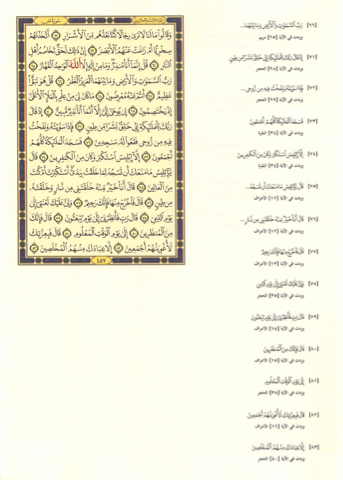 وَقَالُوا۟ مَا لَنَا لَا نَرَىٰ رِجَالًا كُنَّا نَعُدُّهُم مِّنَ ٱلْأَشْرَارِ أَتَّخَذْنَٰهُمْ
سِخْرِيًّا أَمْ زَاغَتْ عَنْهُمُ ٱلْأَبْصَٰرُ إِنَّ ذَٰلِكَ لَحَقٌّ تَخَاصُمُ أَهْلِ
ٱلنَّارِ قُلْ إِنَّمَآ أَنَا۠ مُنذِرٌ وَمَا مِنْ إِلَٰهٍ إِلَّا ٱللَّهُ ٱلْوَٰحِدُ ٱلْقَهَّارُ
رَبُّ ٱلسَّمَٰوَٰتِ وَٱلْأَرْضِ وَمَا بَيْنَهُمَا ٱلْعَزِيزُ ٱلْغَفَّٰرُ قُلْ هُوَ نَبَؤٌا۟
عَظِيمٌ أَنتُمْ عَنْهُ مُعْرِضُونَ مَا كَانَ لِىَ مِنْ عِلْمٍۭ بِٱلْمَلَإِ ٱلْأَعْلَىٰٓ
إِذْ يَخْتَصِمُونَ إِن يُوحَىٰٓ إِلَىَّ إِلَّآ أَنَّمَآ أَنَا۠ نَذِيرٌ مُّبِينٌ إِذْ قَالَ
رَبُّكَ لِلْمَلَٰٓئِكَةِ إِنِّى خَٰلِقٌۢ بَشَرًا مِّن طِينٍ فَإِذَا سَوَّيْتُهُۥ وَنَفَخْتُ
فِيهِ مِن رُّوحِى فَقَعُوا۟ لَهُۥ سَٰجِدِينَ فَسَجَدَ ٱلْمَلَٰٓئِكَةُ كُلُّهُمْ
أَجْمَعُونَ إِلَّآ إِبْلِيسَ ٱسْتَكْبَرَ وَكَانَ مِنَ ٱلْكَٰفِرِينَ قَالَ
يَٰٓإِبْلِيسُ مَا مَنَعَكَ أَن تَسْجُدَ لِمَا خَلَقْتُ بِيَدَىَّ أَسْتَكْبَرْتَ أَمْ كُنتَ
مِنَ ٱلْعَالِينَ قَالَ أَنَا۠ خَيْرٌ مِّنْهُ خَلَقْتَنِى مِن نَّارٍ وَخَلَقْتَهُۥ
مِن طِينٍ قَالَ فَٱخْرُجْ مِنْهَا فَإِنَّكَ رَجِيمٌ وَإِنَّ عَلَيْكَ لَعْنَتِىٓ إِلَىٰ
يَوْمِ ٱلدِّينِ قَالَ رَبِّ فَأَنظِرْنِىٓ إِلَىٰ يَوْمِ يُبْعَثُونَ قَالَ فَإِنَّكَ
مِنَ ٱلْمُنظَرِينَ إِلَىٰ يَوْمِ ٱلْوَقْتِ ٱلْمَعْلُومِ قَالَ فَبِعِزَّتِكَ
لَأُغْوِيَنَّهُمْ أَجْمَعِينَ إِلَّا عِبَادَكَ مِنْهُمُ ٱلْمُخْلَصِينَ
٤٥٧
[٦٦] رَبُّ ٱلسَّمَٰوَٰتِ وَٱلْأَرْضِ وَمَا بَيْنَهُمَا...
وردت في الآية [٦٥] مريم
وردت في الآية [٢٨] الحجر
وردت في الآية [٢٩] الحجر
[٧٣] فَسَجَدَ ٱلْمَلَٰٓئِكَةُ كُلُّهُمْ أَجْمَعُونَ
[٧٤] إِلَّآ إِبْلِيسَ ٱسْتَكْبَرَ وَكَانَ مِنَ ٱلْكَٰفِرِينَ
وردت في الآية [٣٤] البقرة
وردت في الآية [١٢] الأعراف
وردت في الآية [١٢] الأعراف
[٧٧] قَالَ فَٱخْرُجْ مِنْهَا فَإِنَّكَ رَجِيمٌ
[٧٨] وَإِنَّ عَلَيْكَ لَعْنَتِىٓ إِلَىٰ يَوْمِ ٱلدِّينِ
وردت في الآية [٣٥] الحجر
[٧٩] قَالَ رَبِّ فَأَنظِرْنِىٓ إِلَىٰ يَوْمِ يُبْعَثُونَ
[٨٠] قَالَ فَإِنَّكَ مِنَ ٱلْمُنظَرِينَ
[٨١] إِلَىٰ يَوْمِ ٱلْوَقْتِ ٱلْمَعْلُومِ
وردت في الآية [٣٨] الحجر
[٨٢] قَالَ فَبِعِزَّتِكَ لَأُغْوِيَنَّهُمْ أَجْمَعِينَ
[٨٣] إِلَّا عِبَادَكَ مِنْهُمُ ٱلْمُخْلَصِينَ
وردت في الآية [٤٠] الحجر